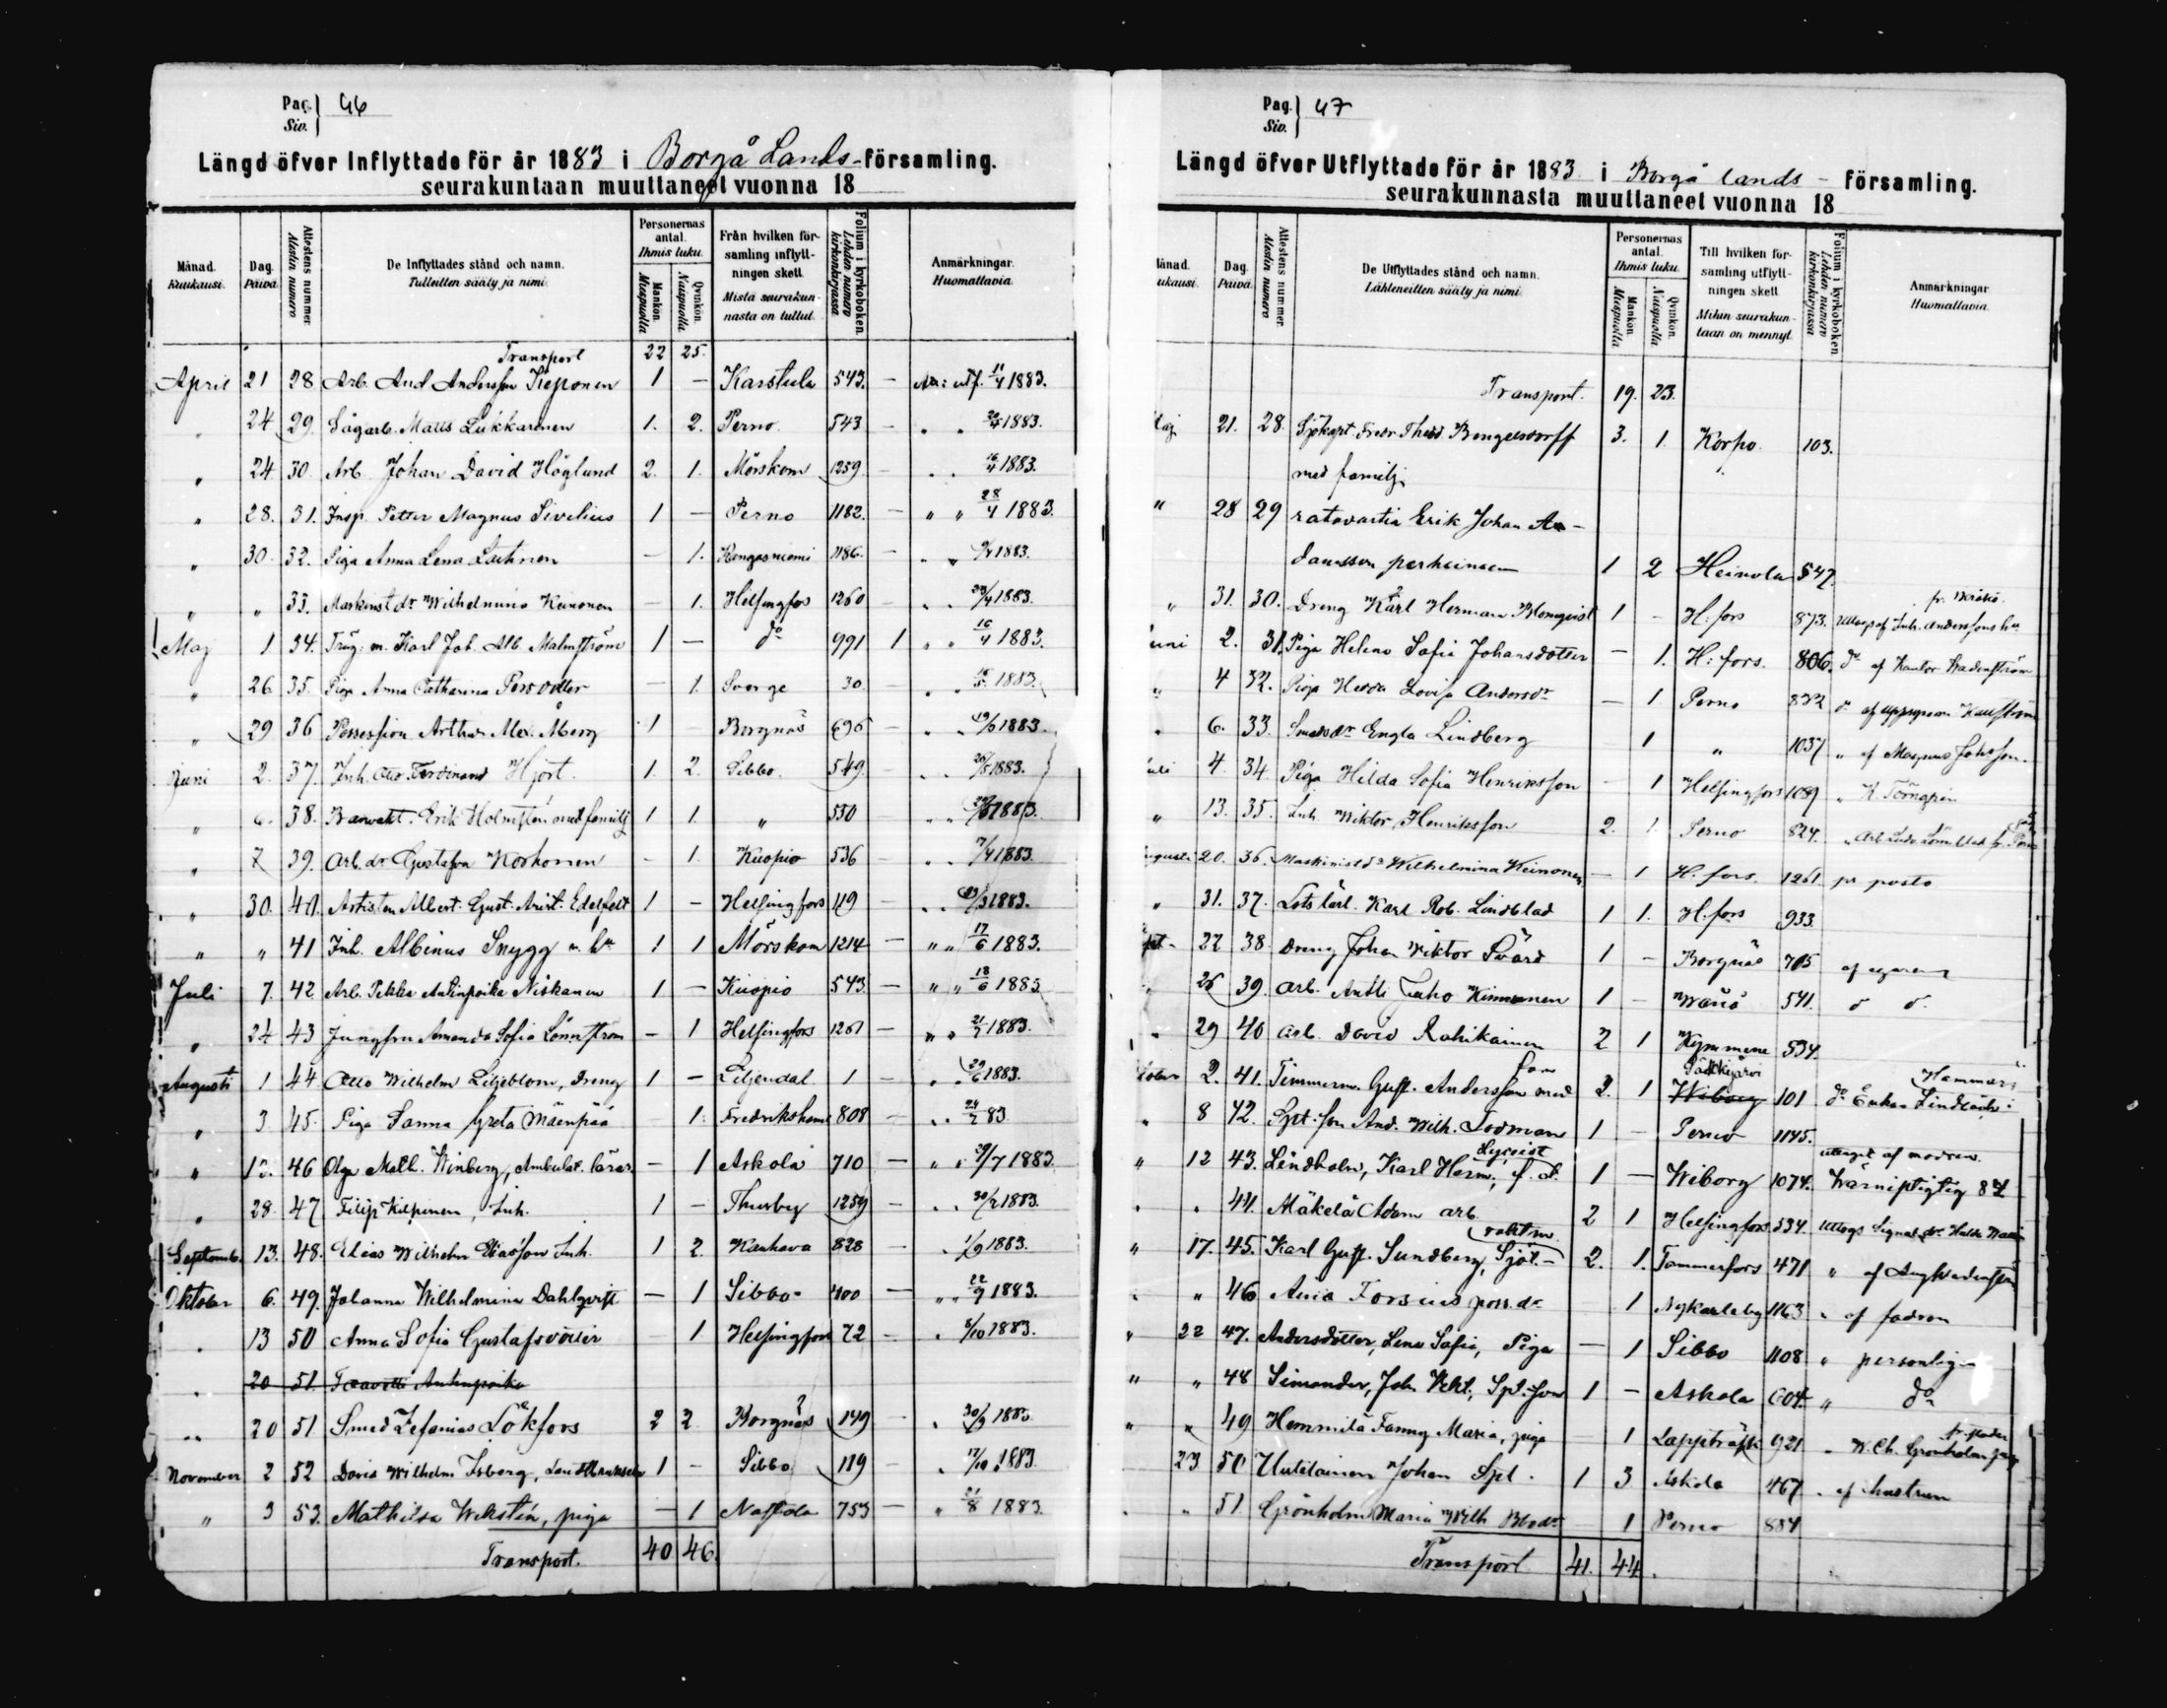 Pag. Siv. 46
Längd öfver Inflyttade för år 1883 i Borgå Lands-församling.
seurakuntaan muuttaneet vuonna 18
Månad. Kuukausi. Dag. Päivä. Attestens nummer. Alestin numero De Inflyttades stånd och namn. Tulleitten sääty ja nimi. Personernas antal. Ihmis luku. Mankön. Miespuolia Qvinkön. Naispuolia Från hvilken församling inflyttningen skett. Mistä seurakunnasta on tullut. Folium i kyrkoboken. Lehden numero kirkonkirjassa Anmärkningar. Huomattavia
Transport 22 25.
April 21 28 Arb. And Andersson Keponen 1 — Karstula 543. — utf. 11/4 1883.
" 24 29. Sågarb. Matts Lukkarinen 1. 2. Perno. 543 — " " 1883.
" 24 30. Arb. Johan David Höglund 2. 1. Mörskom 1259 — " " 16/4 1883.
" 28. 31. Insp. Petter Magnus Sivelius 1 — Perno 1182. — " " 28/4 1883.
" 30. 32. Piga Anna Lena — 1. Kangasniemi 1186. — " " 1883.
" " 33. Maskinist dr Wilhelmina Keinonen — 1. Helsingfors 1260 — " " 1883.
Maj 1 34. Träg: m. Karl Joh. Alb. Malmström 1 — do 991 1 " " 16/4 1883.
" 26 35. Piga Anna Catharina Persdotter — 1. Sverge 30. — " " 1883.
" 29 36 Possession Arthur Alex. Åberg 1 Borgnäs 696 — " " 1883.
Juni 2. 37. Inh. Otto Ferdinand Hjört. 1. 2. Sibbo. 549. — " " 1883.
" 6. 38. Banvakt. Erik Holmstén med familj 1 1. " 550 " " 1883.
" 7 39. Arb. dr Gustafva Korhonen — 1. Kuopio 536 — " " 7/4 1883.
" 30. 40. Artisten Albert Gust. Arist. Edelfelt 1 — Helsingfors 119 — " " 1883.
" " 41 Inh. Albinus Snygg m. hu 1 1 Mörskom 1214 — " " 17/6 1883.
Juli 7. 42 Arb. Pekka Antinpoika Niskanen 1 — Kuopio 543. — " " 18/6 1883
" 24 43 Jungfru Amanda Sofia Lönnström — 1 Helsingfors 1261 — " " 21/7 1883.
Augusti 1 44 Otto Wilhelm Liljeblom, dreng 1 — Liljendal 1 — " " 1883.
" 3. 45. Piga Sanna Greta Mäenpää 1. Fredrikshamn 808 — " " 24/7 83
" 12. 46 Olga Math. Winberg, Ambulat. lärar. — 1 Askola 710 — " " 29/7 1883
" 28. 47 Filip Kilpinen, Inh. 1 — Thusby 1259 — " " 1883.
Septemb. 13. 48. Elias Wilhelm Eliasson Inh. 1 2. Kauhava 828 — " 1/9 1883.
Oktober 6. 49. Johanna Wilhelmina Dahlqvist — 1 Sibbo. 400 — " " 22/9 1883.
" 13 50 Anna Sofia Gustafsdotter 1 Helsingfors 72 — " 5/10 1883.
" 20 51. Taavetti Antinpoika
" 20 51 Smed Zefanias Lökfors 2 2 Borgnäs 149 — " 30/9 1883.
November 2 52 David Wilhelm Isberg, 1 — Sibbo 119 — " 17/10 1883.
" 3 53. Mathilda Wekstén, piga — 1 Nastola 753 — " 21/8 1883.
Transport. 40 46.
Pag. Siv. 47
Längd öfver Utflyttade för år 1883 i Borgå lands- församling.
seurakunnasta muuttaneet vuonna 18
ånad. ukausi. Dag. Päivä. Attestens nummer. Alestin numero De Utflyttades stånd och namn. Lähteneitten sääty ja nimi. Personernas antal. Ihmis luku. Mankön. Miespuolia Qvinkön. Naispuolia Till hvilken församling utflyttningen skett. Mihin seurakuntaan on mennyt. Folium i kyrkoboken. Lehden numero kirkonkirjassa Anmärkningar. Huomattavia.
Transport. 19. 23.
Maj 21. 28. Sjökapt. Fredr. Theod. Bengelsdorff 3. 1. Korpo. 103.
med familj.
" 28 29 ratavartia Erik Johan
perheineen 1 2 Heinola 547.
" 31. 30. Dreng Karl Herman Blomqvist 1 — H:fors 873.
uni 2. 31. Piga Helena Sofia Johansdotter — 1. H:fors. 806. do af Kantor
" 4 32. Piga Hedda Lovisa Andersdr — 1 Perno 832
" 6. 33. Smedsdr Engla Lindberg 1 " 1037 " af Magnus Johansson.
uli 4. 34. Piga Hilda Sofia Henriksson — 1 Helsingfors 1089 " K. Törngren
" 13. 35. Inh. Wiktor Henriksson 2. 1. Perno 824.
ugusti 20. 36. Maskinist dr Wilhelmina Keinonen — 1 H.fors. 1261 pr posto
" 31. 37. Lotslärl. Karl Rob. Lindblad 1 1. H.fors 933.
pt. 22 38. Dreng Johan Viktor Svärd 1 — Borgnäs 705 af egaren
" 26 39. Arb. Antti Juho Kinnunen 1 — 541.
" 29 40 Arb. David Rahikainen 2 1 Kymmene 534.
tober 2. 41. Timmerm. Gust. Andersson med fam 2. 1 Wiborg 101 do Enkan Lindbäck i Hammars
" 8 42. Spt. son And. Wilh. Todman 1 — Perno 1145.
" 12 43. Lindholm, Karl Herm., f. d. 1 — Wiborg 1074. uttaget af modren. Värnpligtig 84
" " 44. Mäkelä Adam arb. 2 1 Helsingfors 534
" 17. 45. Karl Gust. Sundberg, 2. 1. Tammerfors 471
" " 46 Forsius poss.dr 1 Nykarleby 1163 " af fadren
" 22 47. Andersdotter, Lena Sofia, Piga — 1 Sibbo 1108 " personlig
" " 48 Simander, Joh. Vikt., Spt. son 1 — Askola 604. " do
" " 49 Hemmilä Fanny Maria, piga 1 Lappträsk 921
" 23 50 Uutelainen Johan Spt. 1 3 Askola 467 " af hustrun
" " 51. Grönholm Maria Wilh 1 Perno 884
Transport 41. 44.